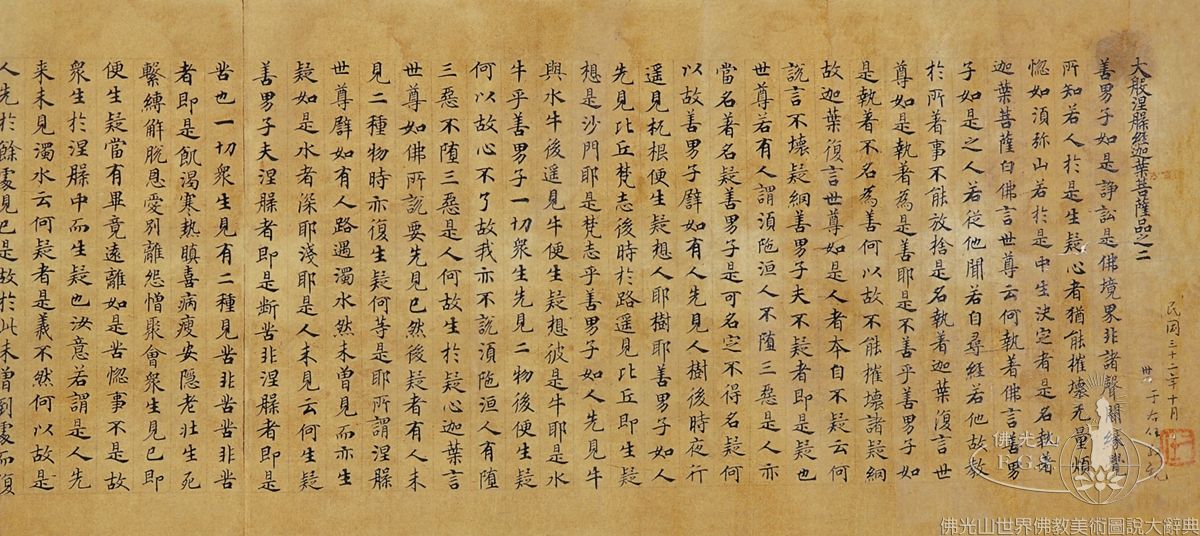 民国三十二年十月
于右任
大般涅槃經迦葉菩薩品之二
善男子如是諍訟是佛境界非諸聲聞緣覺
所知若人於是生疑心者猶能摧壞无量煩
惱如湏弥山若於是中生决定者是名執著
迦葉菩薩白佛言世尊云何執著佛言善男
子如是之人若從他聞若自尋経若他故教
於所著事不能放捨是名執著迦葉復言世
尊如是執著為是善耶是不善乎善男子如
是執著不名為善何以故不能摧壞諸疑網
故迦葉復言世尊如是人者本自不疑云何
說言不壞疑網善男子夫不疑者即是疑也
世尊若有人謂湏陁洹人不墮三惡是人亦
當名著名疑善男子是可名定不得名疑何
以故善男子譬如有人先見人樹後時夜行
遥見杌根便生疑想人耶樹耶善男子如人
先見比丘梵志後時於路遥見比丘即生疑
想是沙門耶是梵志乎善男子如人先見牛
與水牛後遥見牛便生疑想彼是牛耶是水
牛乎善男子一切衆生先見二物後便生疑
何以故心不了故我亦不說湏陁洹人有墮
三惡不墮三惡是人何故生於疑心迦葉言
世尊如佛所說要先見已然後疑者有人未
見二種物時亦復生疑何等是耶所謂涅槃
世尊譬如有人路遇濁水然未曾見而亦生
疑如是水者深耶淺耶是人未見云何生疑
善男子夫涅槃者即是断苦非涅槃者即是
苦也一切衆生見有二種見苦非苦苦非苦
者即是飢渴寒熱瞋喜病瘦安隱老壮生死
繫縛解脫恩愛別離怨憎聚會衆生見已即
便生疑當有畢竟遠離如是苦惱事不是故
衆生於涅槃中而生疑也汝意若謂是人先
来未見濁水云何疑者是義不然何以故是
人先於餘處見已是故於此未曾到處而復
佛光山
FGS
佛光山世界佛教美術圖說大辭典